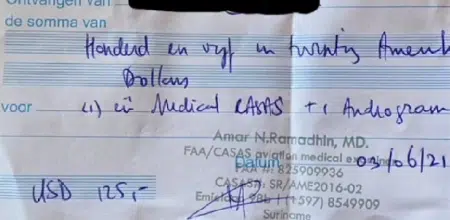 Ontvangen van
de somma van
Honderd en vijf en twintig Amerik
Dollars
voor (1) één Medical CASAS + 1 Audiogram
Amar N.Ramadhin, MD.
FAA/CASAS aviation medical examiner
FAA #: 825909936
Datum 03/06/21
CASAS#: SR/AME2016-02
USD 125,-
(+597) 8549909
Suriname